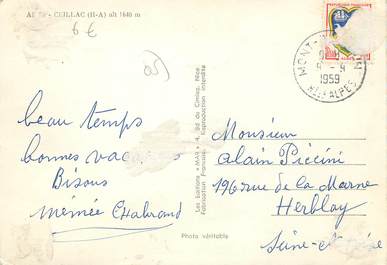 CEILLAC (H-A) alt 1640 m
6€
05
MONT-
9 - 9
1959
HTES ALPES
beau temps
bonnes vacances
Bisous
mémée Chabrand
Les Editions "MAR" 4, Bd du Cimiez, Nice
Fabrication Française - Reproduction interdite
Photo véritable
Monsieur
Alain Piccini
196 rue de la Marne
Herblay
Seine-et-Oise